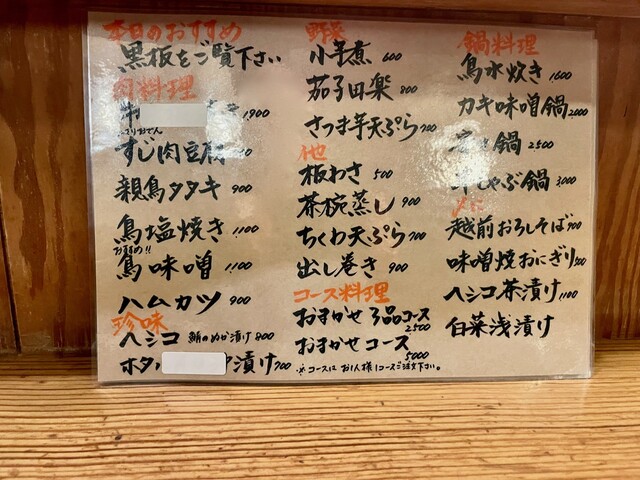 本日のおすすめ
黒板をご覧下さい
肉料理
牛 1,900
すじ肉豆腐
親鳥タタキ 900
鳥塩焼き 1,100
おすすめ!!
鳥味噌 1,100
ハムカツ 900
珍味
ヘシコ 鯖のぬか漬け 800
ホタ 漬け 700
野菜
小芋煮 600
茄子田楽 800
さつま芋天ぷら 700
他
板わさ 500
茶碗蒸し 900
ちくわ天ぷら 700
出し巻き 900
コース料理
おまかせ3品コース 2500
おまかせコース 5000
※コースはお1人様1コースご注文下さい。
鍋料理
鳥水炊き 1,600
カキ味噌鍋 2000
き鍋 2500
しゃぶ鍋 3,000
〆に
越前おろしそば 900
味噌焼おにぎり
ヘシコ茶漬け 1,100
白菜浅漬け